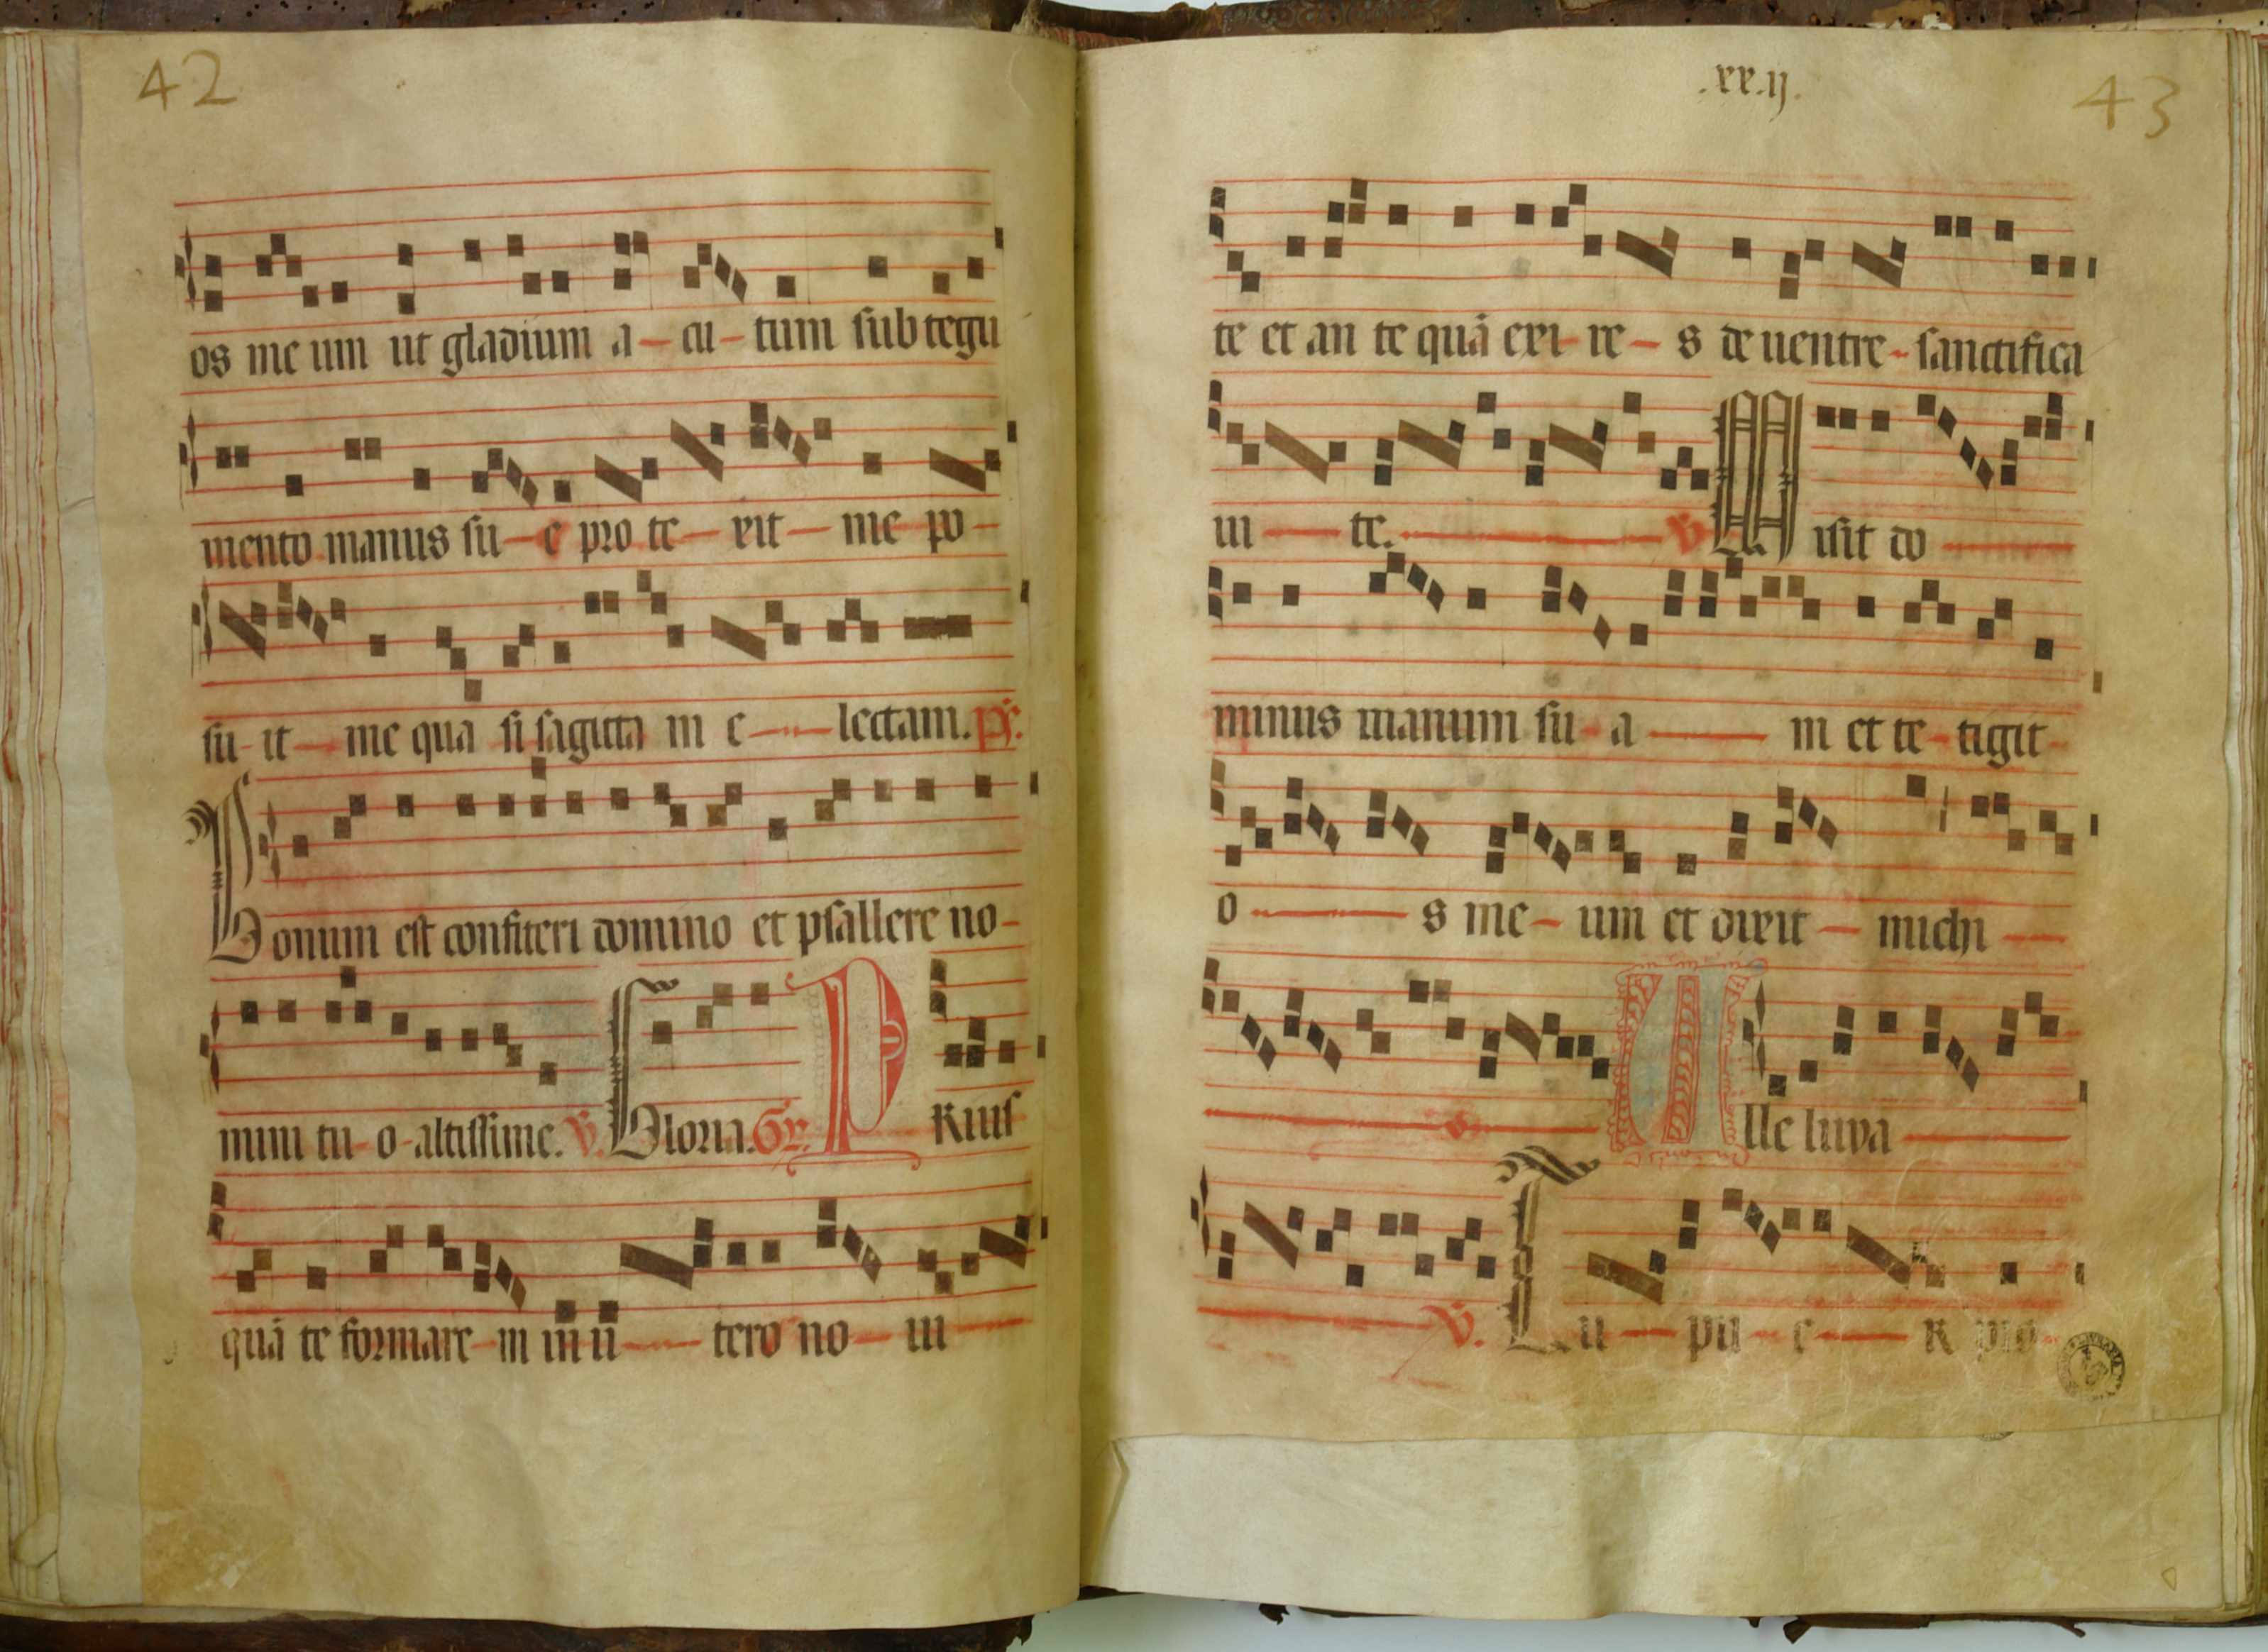 42
os me um ut gladium a - cu - tum sub tegu
mento manus su - e pro te - xit - me po -
su - it - me qua si sagitta m e - lectam. ps.
Bonum est confiteri domino et psallere no -
mini tu - o - altissime. V. Gloria. Gr. P Rius
quā te formare - m in u - tero no - ui -
.xx.ij.
43
te et an te quā exi - re - s de uentre - sanctifica
ui - te. - V Misit do -
minus manum su - a - m et te - tigit -
o - s me - um et dixit - michi -
Alle luya -
V. Tu - pu - e - R pro -